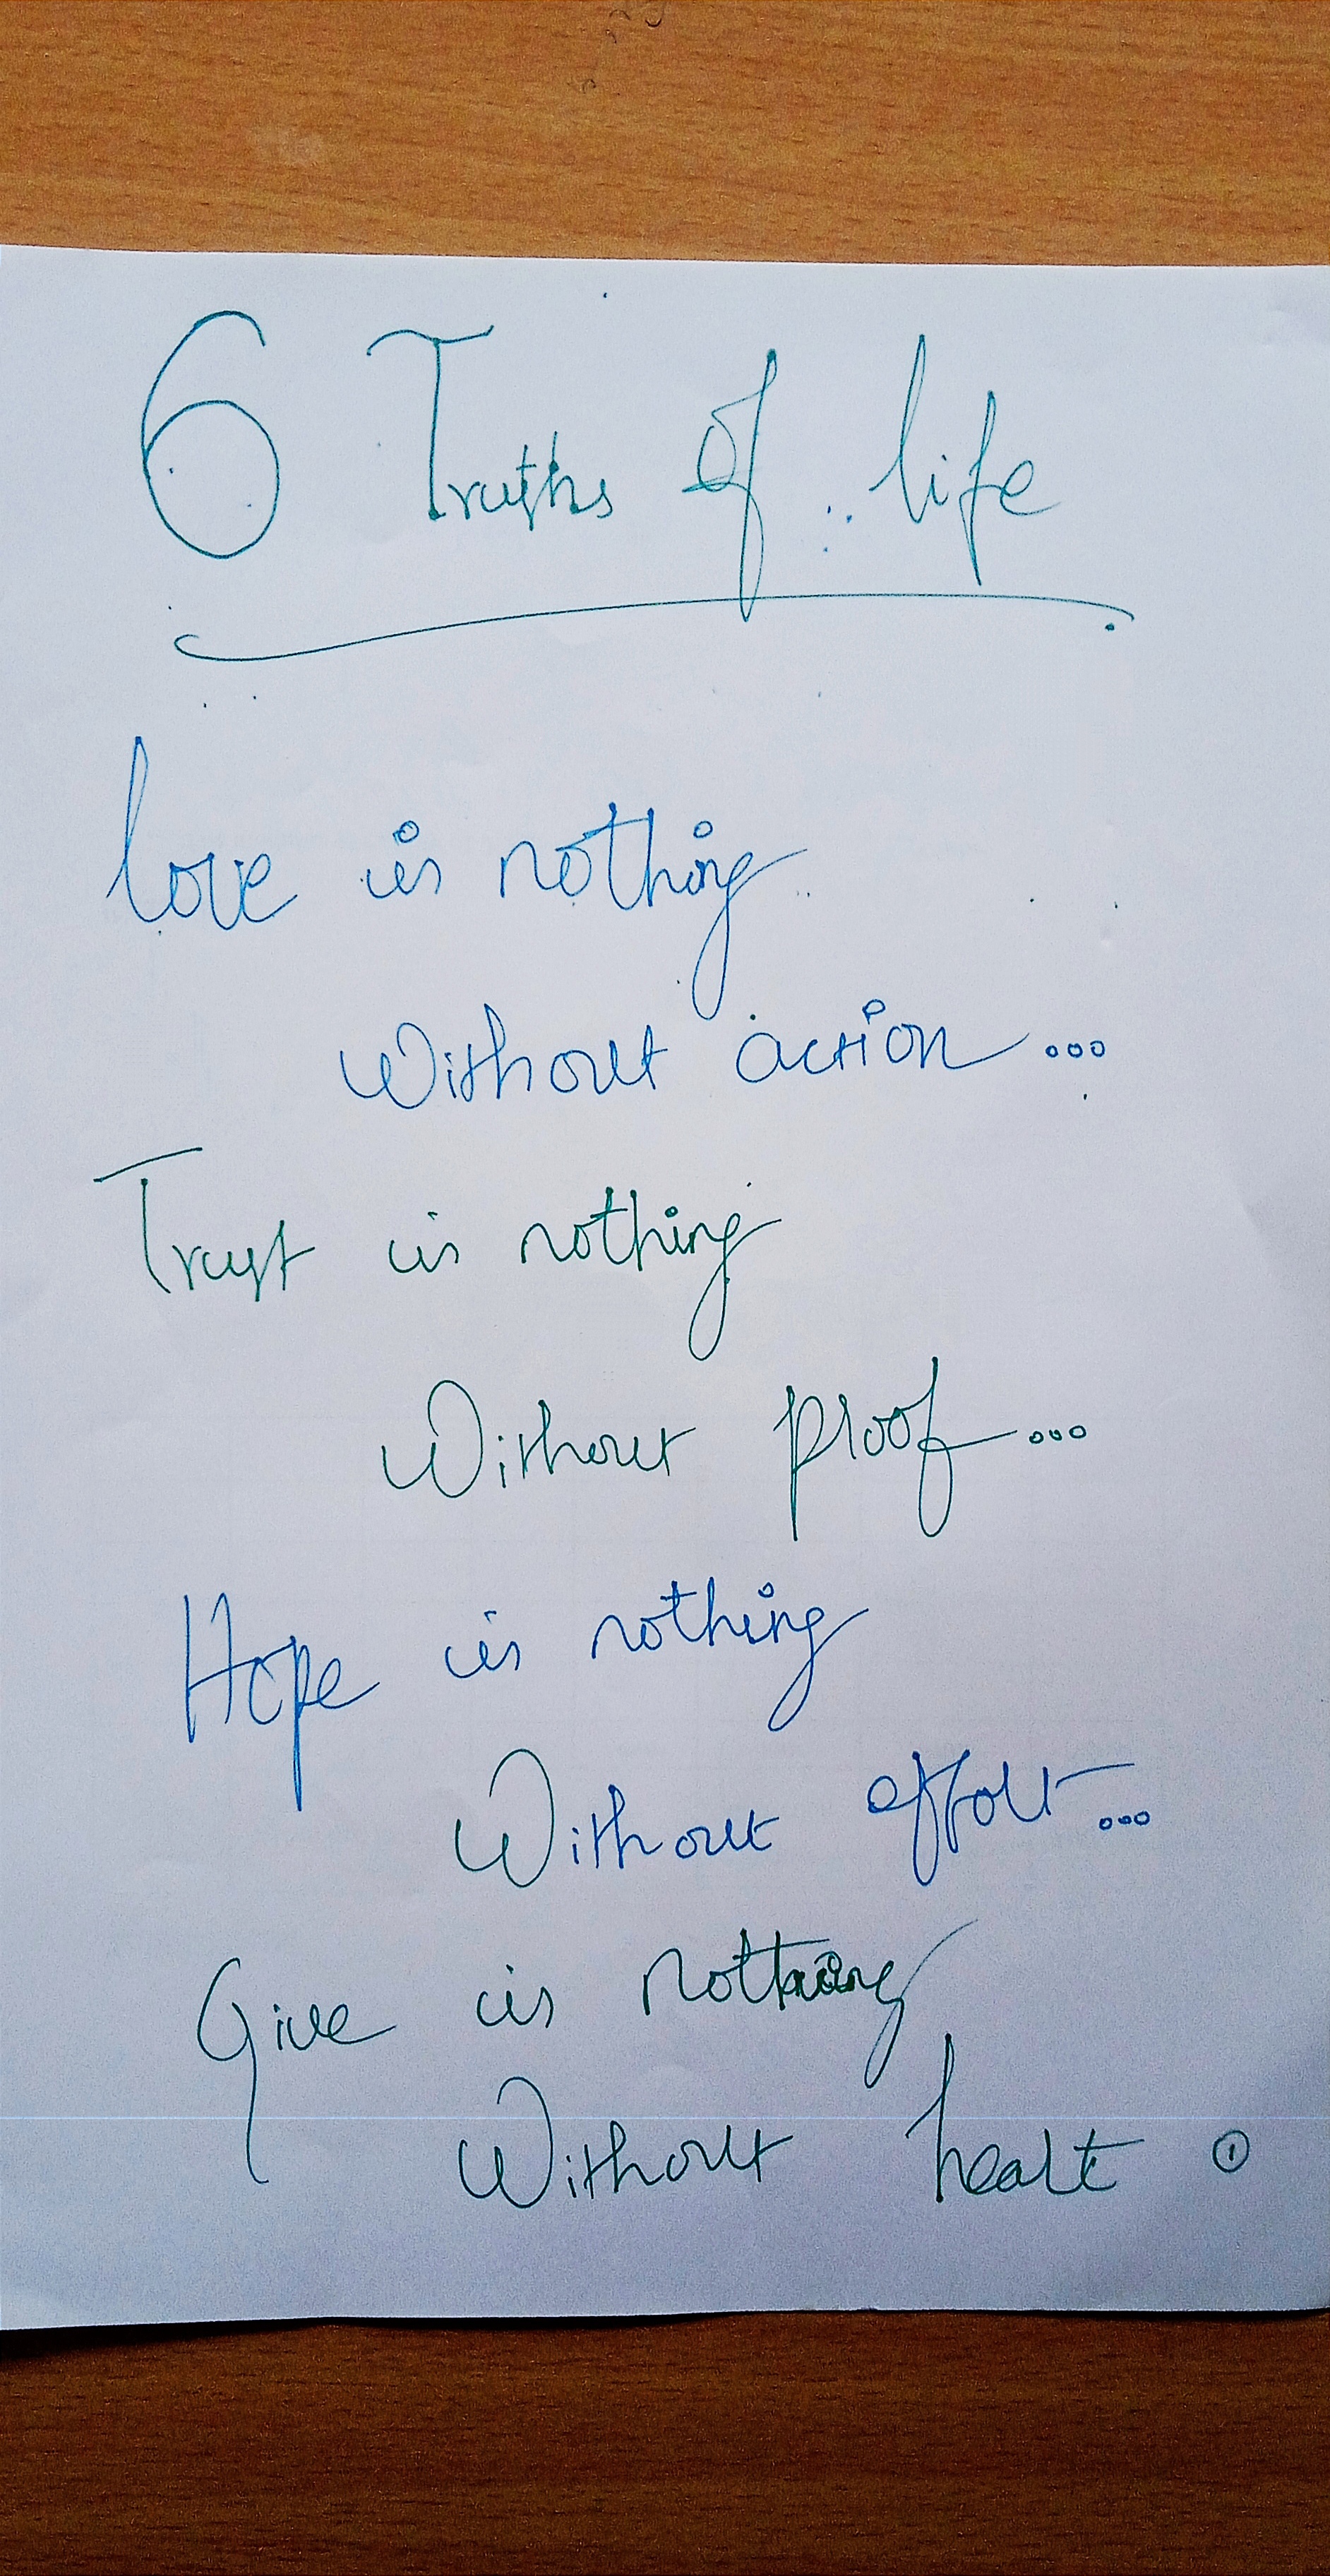 6 Truths of life
love is nothing
without action...
Trust is nothing
Without proof...
Hope is nothing
Without effort...
Give is nothing
Without heart ①